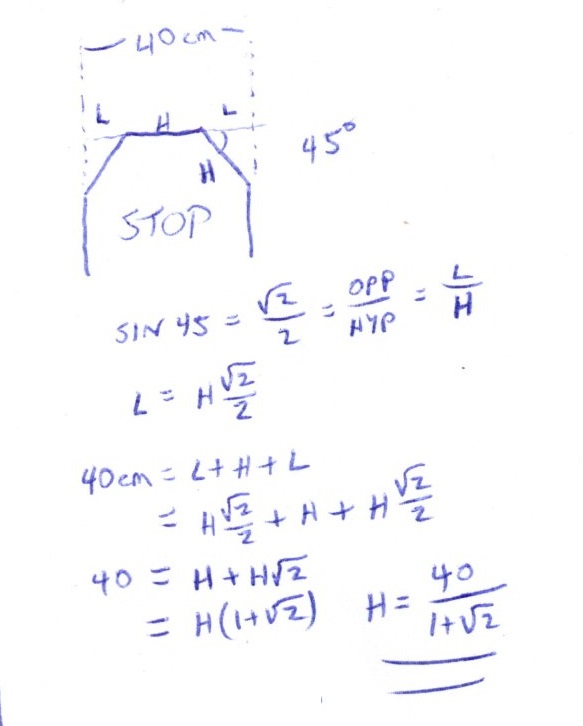 40cm
L H L
45°
H
STOP
SIN 45 = √2/2 = OPP/HYP = L/H
L = H √2/2
40cm = L + H + L
= H √2/2 + H + H √2/2
40 = H + H√2
= H(1+√2) H = 40/(1+√2)